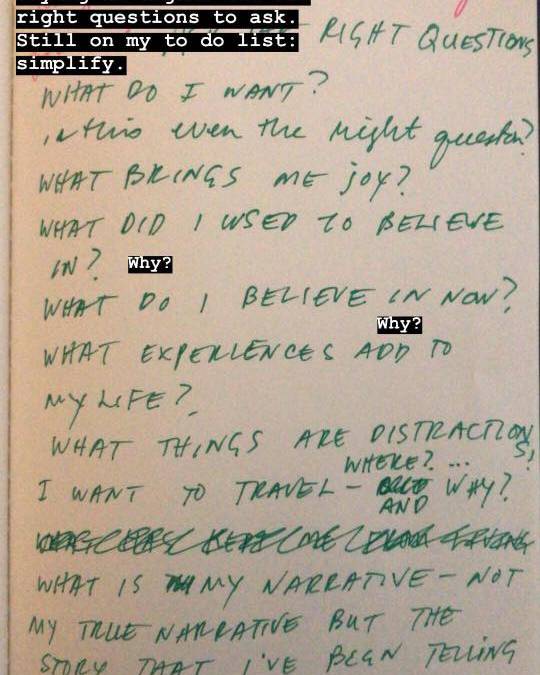 right questions to ask.
Still on my to do list:
simplify.
RIGHT QUESTIONS
WHAT DO I WANT?
is this even the right question?
WHAT BRINGS ME JOY?
WHAT DID I USED TO BELIEVE
IN? Why?
WHAT DO I BELIEVE IN NOW?
Why?
WHAT EXPERIENCES ADD TO
MY LIFE?
WHAT THINGS ARE DISTRACTIONS!
WHERE? ...
I WANT TO TRAVEL - WHY?
AND
WHAT IS MY NARRATIVE - NOT
MY TRUE NARRATIVE BUT THE
STORY THAT I'VE BEEN TELLING